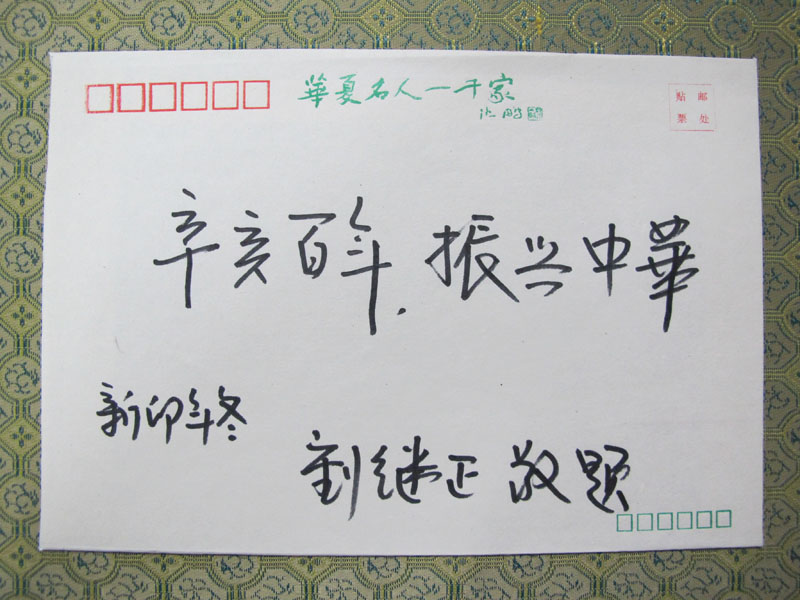 華夏名人一千家
沈鹏
贴 邮
票 处
辛亥百年.振兴中華
新卯年冬
劉继正 敬题